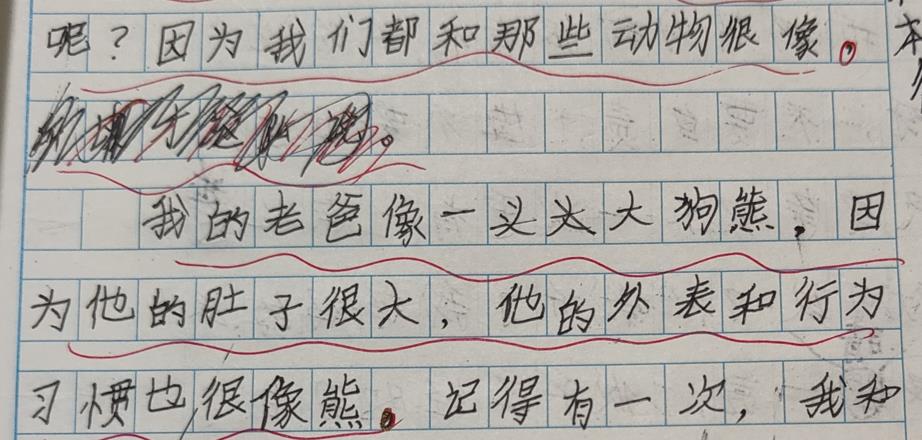 呢？因为我们都和那些动物很像。
我的老爸像一头大狗熊，因
为他的肚子很大，他的外表和行为
习惯也很像熊。记得有一次，我和